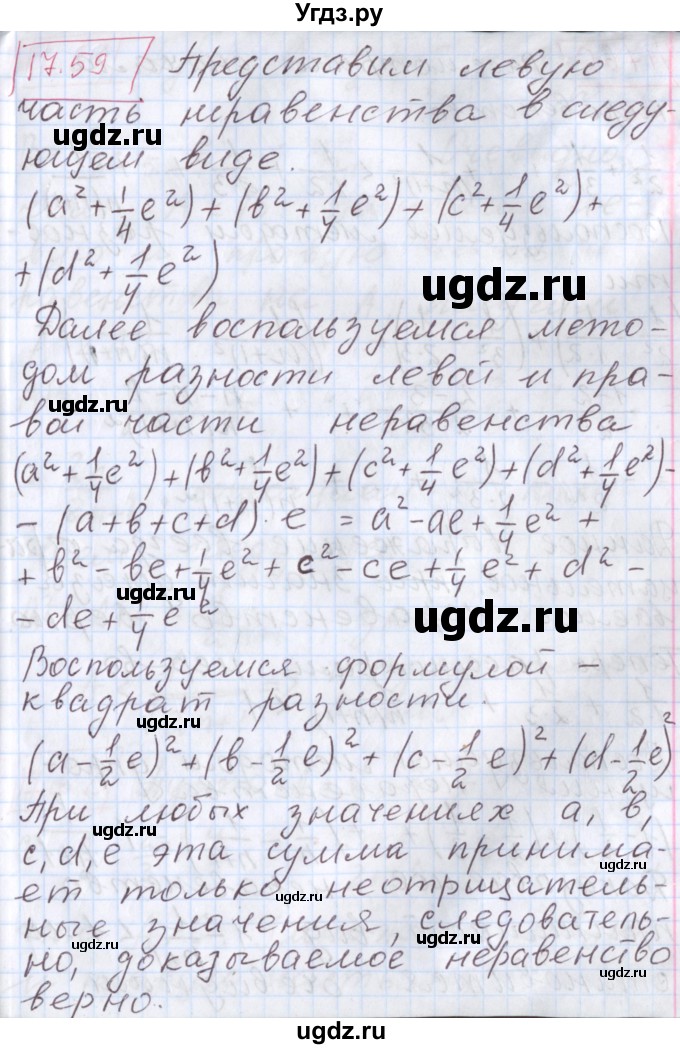 Угдз.ру
17.59 Представим левую
часть неравенства в следу-
ющем виде.
(a² + 1/4 e²) + (b² + 1/4 e²) + (c² + 1/4 e²) +
+ (d² + 1/4 e²)
ugdz.ru
Далее воспользуемся мето-
дом разности левой и пра-
ugdz.ru
вой части неравенства
ugdz.ru
(a² + 1/4 e²) + (b² + 1/4 e²) + (c² + 1/4 e²) + (d² + 1/4 e²) -
- (a+b+c+d) · e = a² - ae + 1/4 e² +
+ b² - be + 1/4 e² + c² - ce + 1/4 e² + d² -
- de + 1/4 e²
ugdz.ru
ugdz.ru
Воспользуемся формулой –
квадрат разности.
ugdz.ru
(a - 1/2 e)² + (b - 1/2 e)² + (c - 1/2 e)² + (d - 1/2 e)²
При любых значениях a, b,
ugdz.ru
c, d, e эта сумма принима-
ugdz.ru
ет только неотрицатель-
ные значения, следователь-
ugdz.ru
ugdz.ru
но, доказываемое неравенство
верно.
ugdz.ru
ugdz.ru